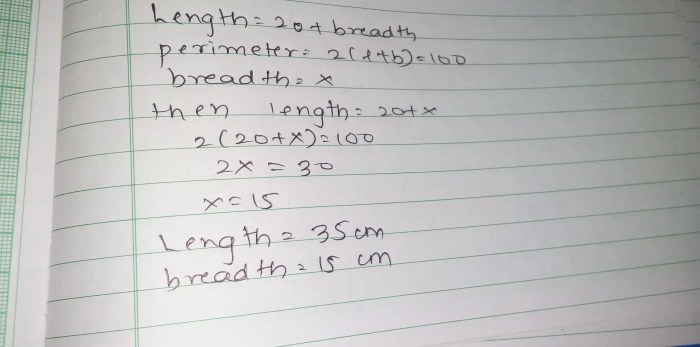 Length = 20 + breadth
perimeter = 2(l+b)=100
breadth = x
then length = 20+x
2(20+x)=100
2x = 30
x=15
Length = 35 cm
breadth = 15 cm